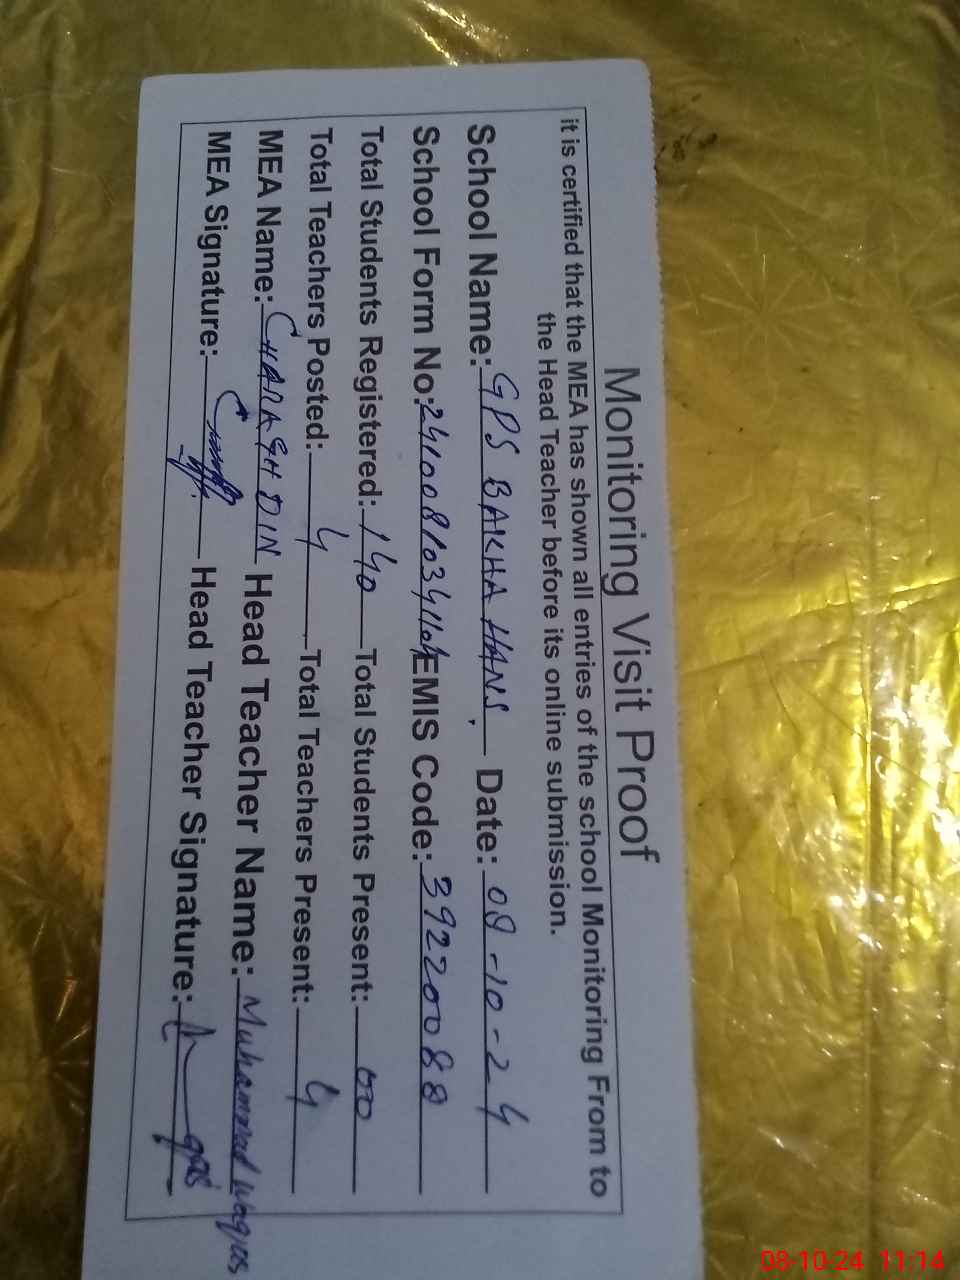 Monitoring Visit Proof
it is certified that the MEA has shown all entries of the school Monitoring From to
the Head Teacher before its online submission.
School Name: GPS BAKHA HANS. Date: 08-10-24
School Form No: EMIS Code: 39220088
Total Students Registered: 140 Total Students Present: 00
Total Teachers Posted: 4 Total Teachers Present: 4
MEA Name: CHARAGH DIN Head Teacher Name: Muhammad Waqas
MEA Signature: Head Teacher Signature:
08-10-24 11:14